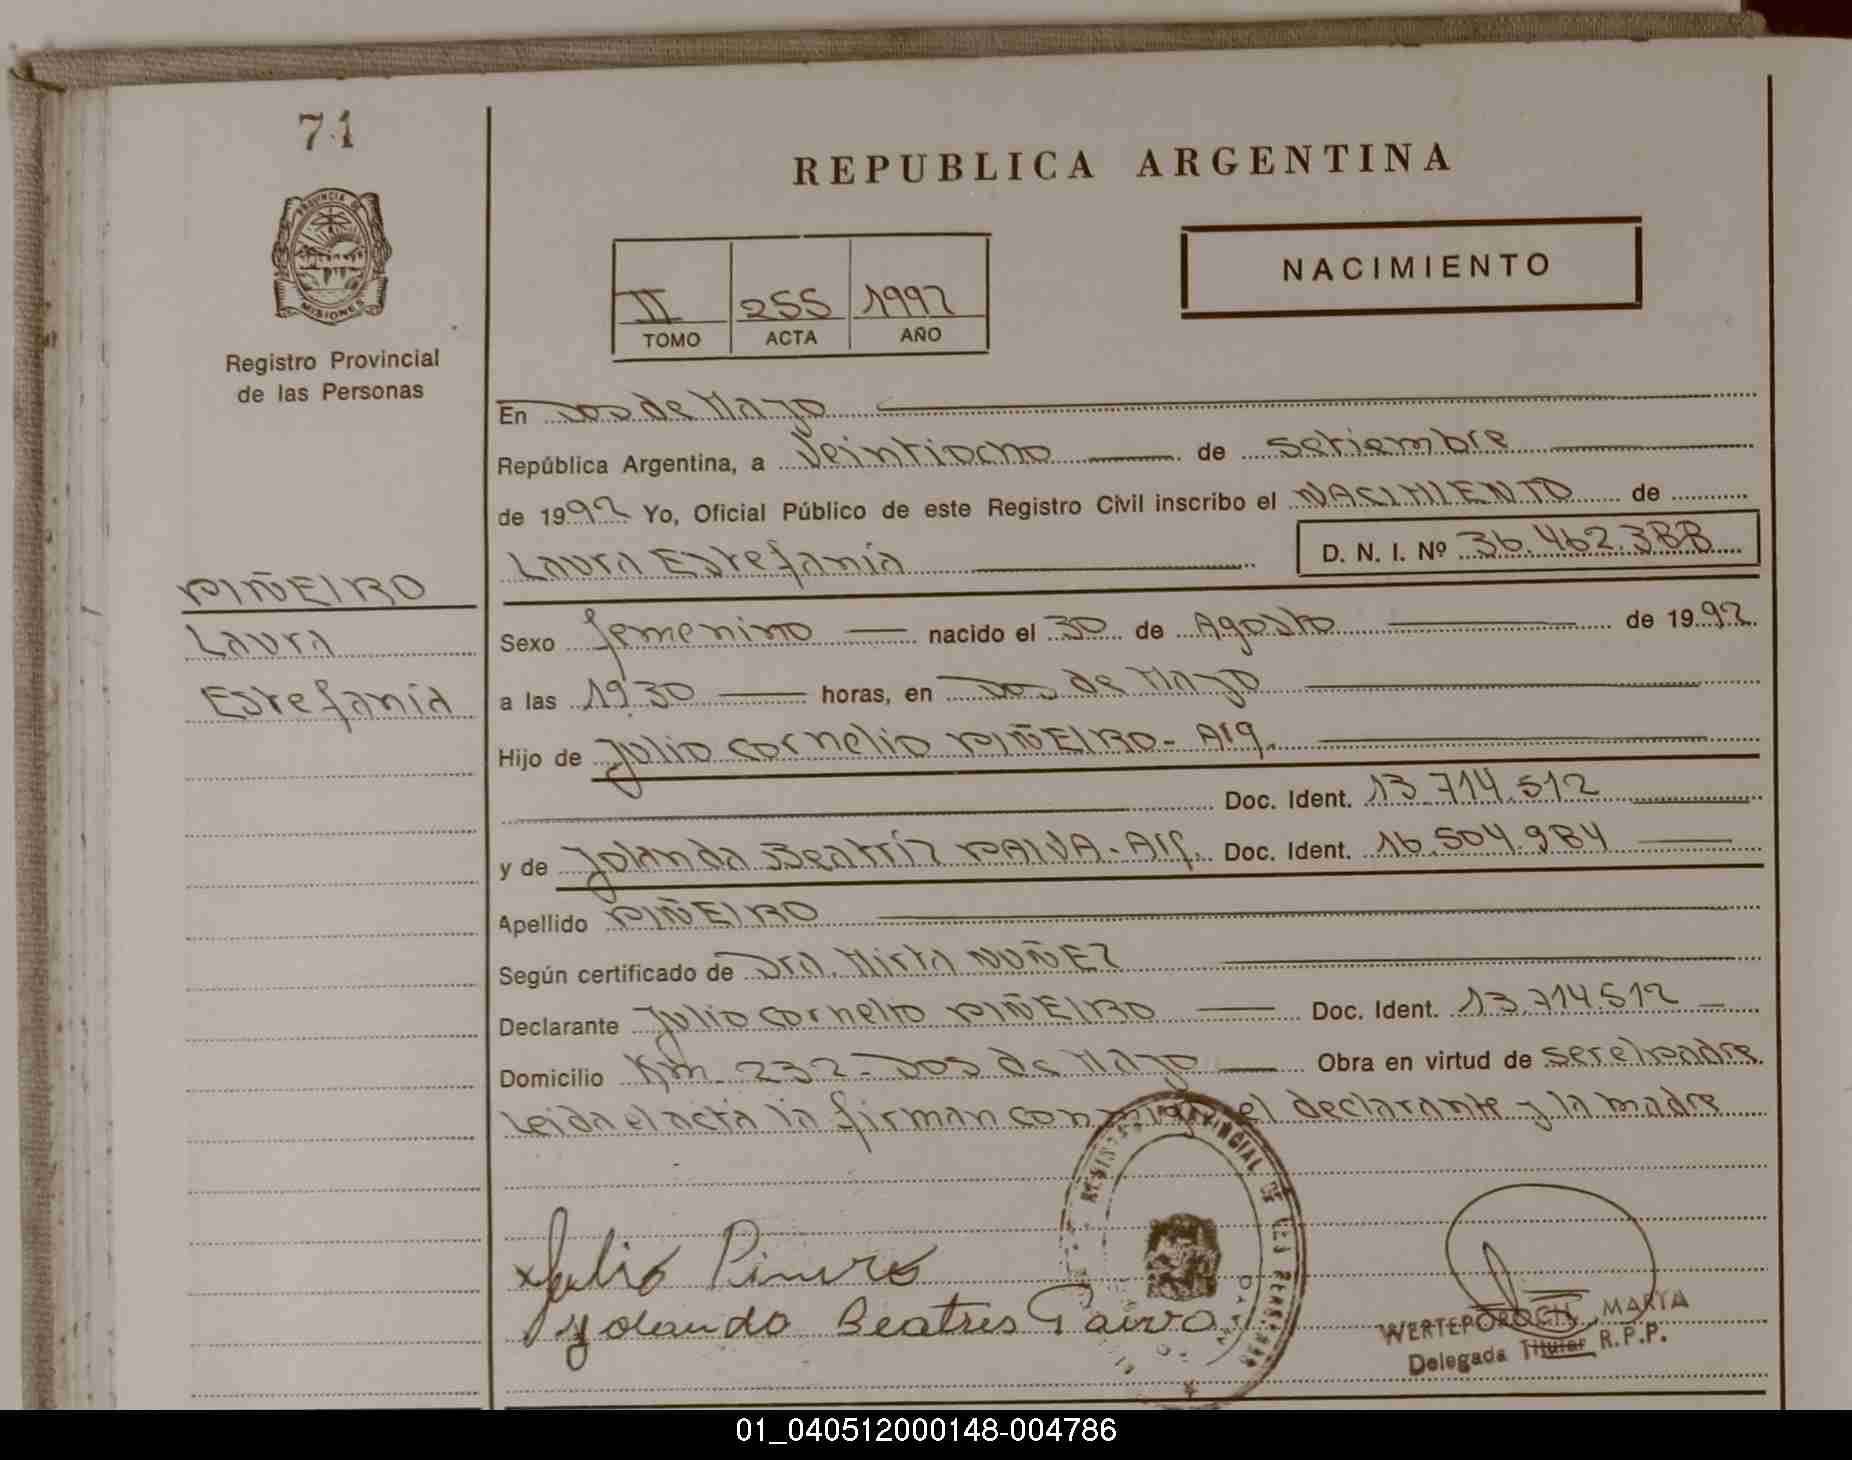 71
REPUBLICA ARGENTINA
PROVINCIA DE
MISIONES
Registro Provincial
de las Personas
II 255 1992
TOMO ACTA AÑO
NACIMIENTO
PIÑEIRO
Laura
Estefanía
En Dos de Mayo
República Argentina, a Veintiocho de setiembre
de 1992 Yo, Oficial Público de este Registro Civil inscribo el NACIMIENTO de
Laura Estefanía D. N. I. Nº 36.462.388
Sexo femenino nacido el 30 de Agosto de 1992
a las 19.30 horas, en Dos de Mayo
Hijo de Julio Cornelio PIÑEIRO - Arg.
Doc. Ident. 13.714.512
y de Yolanda Beatríz PAIVA - Arg. Doc. Ident. 16.504.984
Apellido PIÑEIRO
Según certificado de Dra. Mirta NUÑEZ
Declarante Julio Cornelio PIÑEIRO Doc. Ident. 13.714.512
Domicilio Km 232 - Dos de Mayo Obra en virtud de ser el padre
Leida el acta la firman conmigo el declarante y la madre
REGISTRO PROVINCIAL DE LAS PERSONAS
Julio
Yolando Beatris Paiva
WERTEPOROCH, MARTA
Delegada Titular R.P.P.
01_040512000148-004786